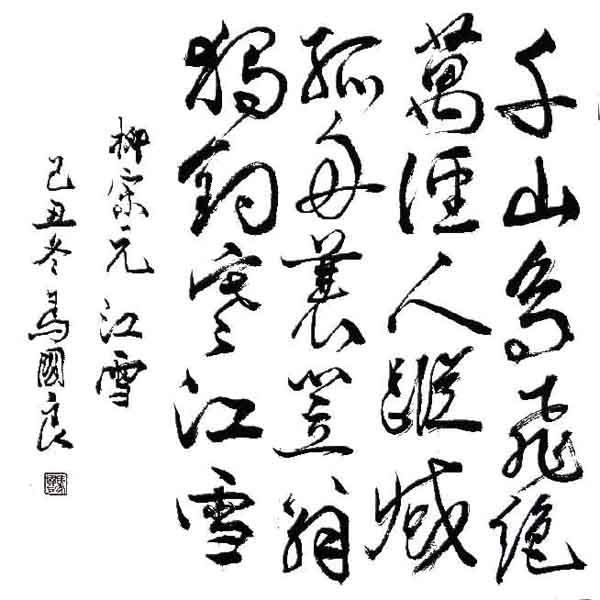 千山鳥飛絕
萬徑人蹤滅
孤舟蓑笠翁
獨釣寒江雪
柳宗元 江雪
己丑冬 馬國良